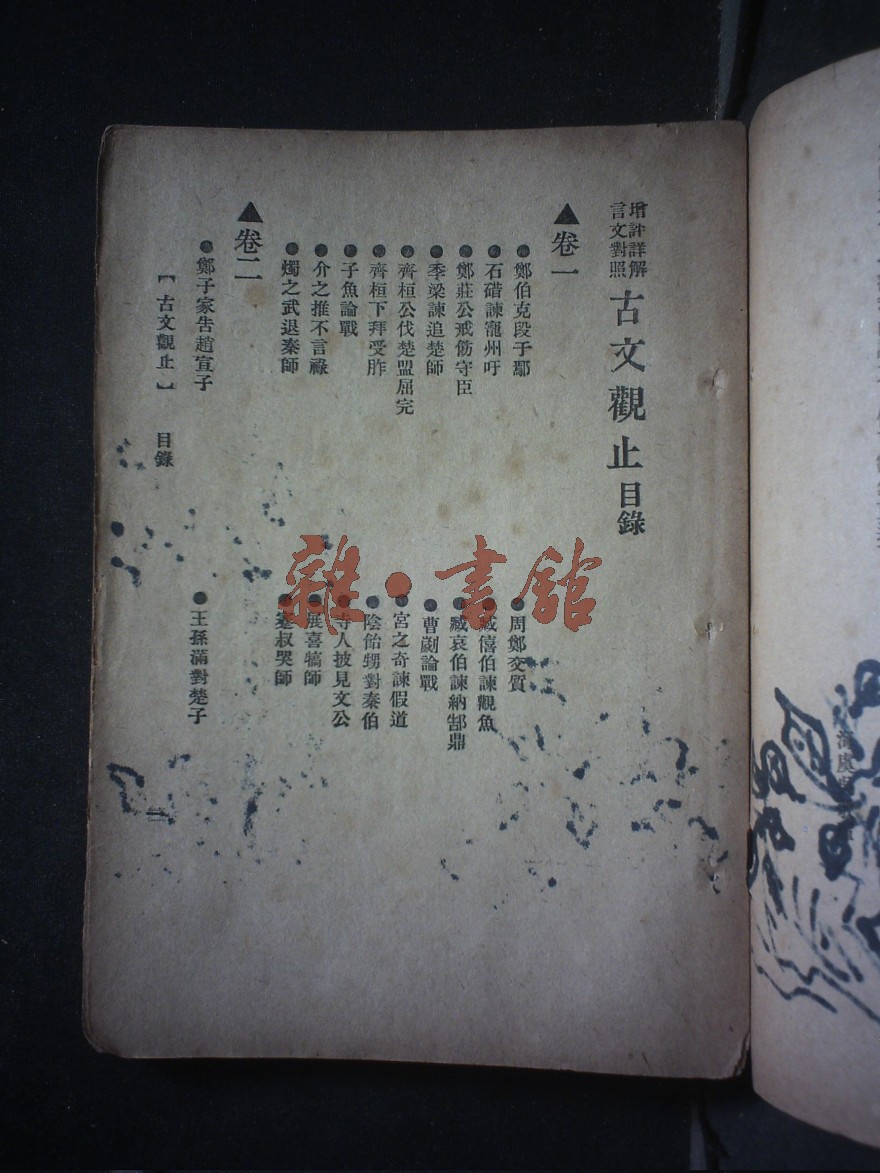 增評詳解
言文對照
古文觀止目錄
▲卷一
●鄭伯克段于鄢
●周鄭交質
●石碏諫寵州吁
●臧僖伯諫觀魚
●鄭莊公戒飭守臣
●臧哀伯諫納郜鼎
●季梁諫追楚師
●曹劌論戰
●齊桓公伐楚盟屈完
●宮之奇諫假道
●齊桓下拜受胙
●陰飴甥對秦伯
●子魚論戰
●寺人披見文公
●介之推不言祿
●展喜犒師
●燭之武退秦師
●蹇叔哭師
▲卷二
●鄭子家告趙宣子
●王孫滿對楚子
【古文觀止】 目錄
一
雜·書館